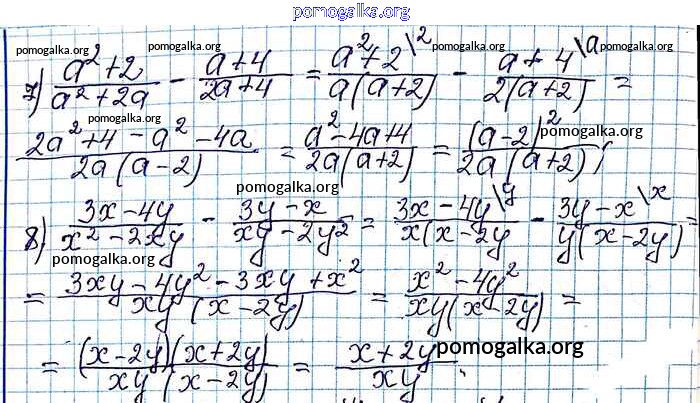 pomogalka.org
pomogalka.org pomogalka.org pomogalka.org pomogalka.org
7) (a²+2)/(a²+2a) - (a+4)/(2a+4) = (a²+2\2)/(a(a+2)) - (a+4\a)/(2(a+2)) =
pomogalka.org
(2a²+4-a²-4a)/(2a(a-2)) = (a²-4a+4)/(2a(a+2)) = (a-2)²/(2a(a+2));
pomogalka.org
pomogalka.org
8) (3x-4y)/(x²-2xy) - (3y-x)/(xy-2y²) = (3x-4y\y)/(x(x-2y) - (3y-x\x)/(y(x-2y)) =
= (3xy-4y²-3xy+x²)/(xy(x-2y)) = (x²-4y²)/(xy(x-2y)) =
= ((x-2y)(x+2y))/(xy(x-2y)) = (x+2y)/(xy).
pomogalka.org